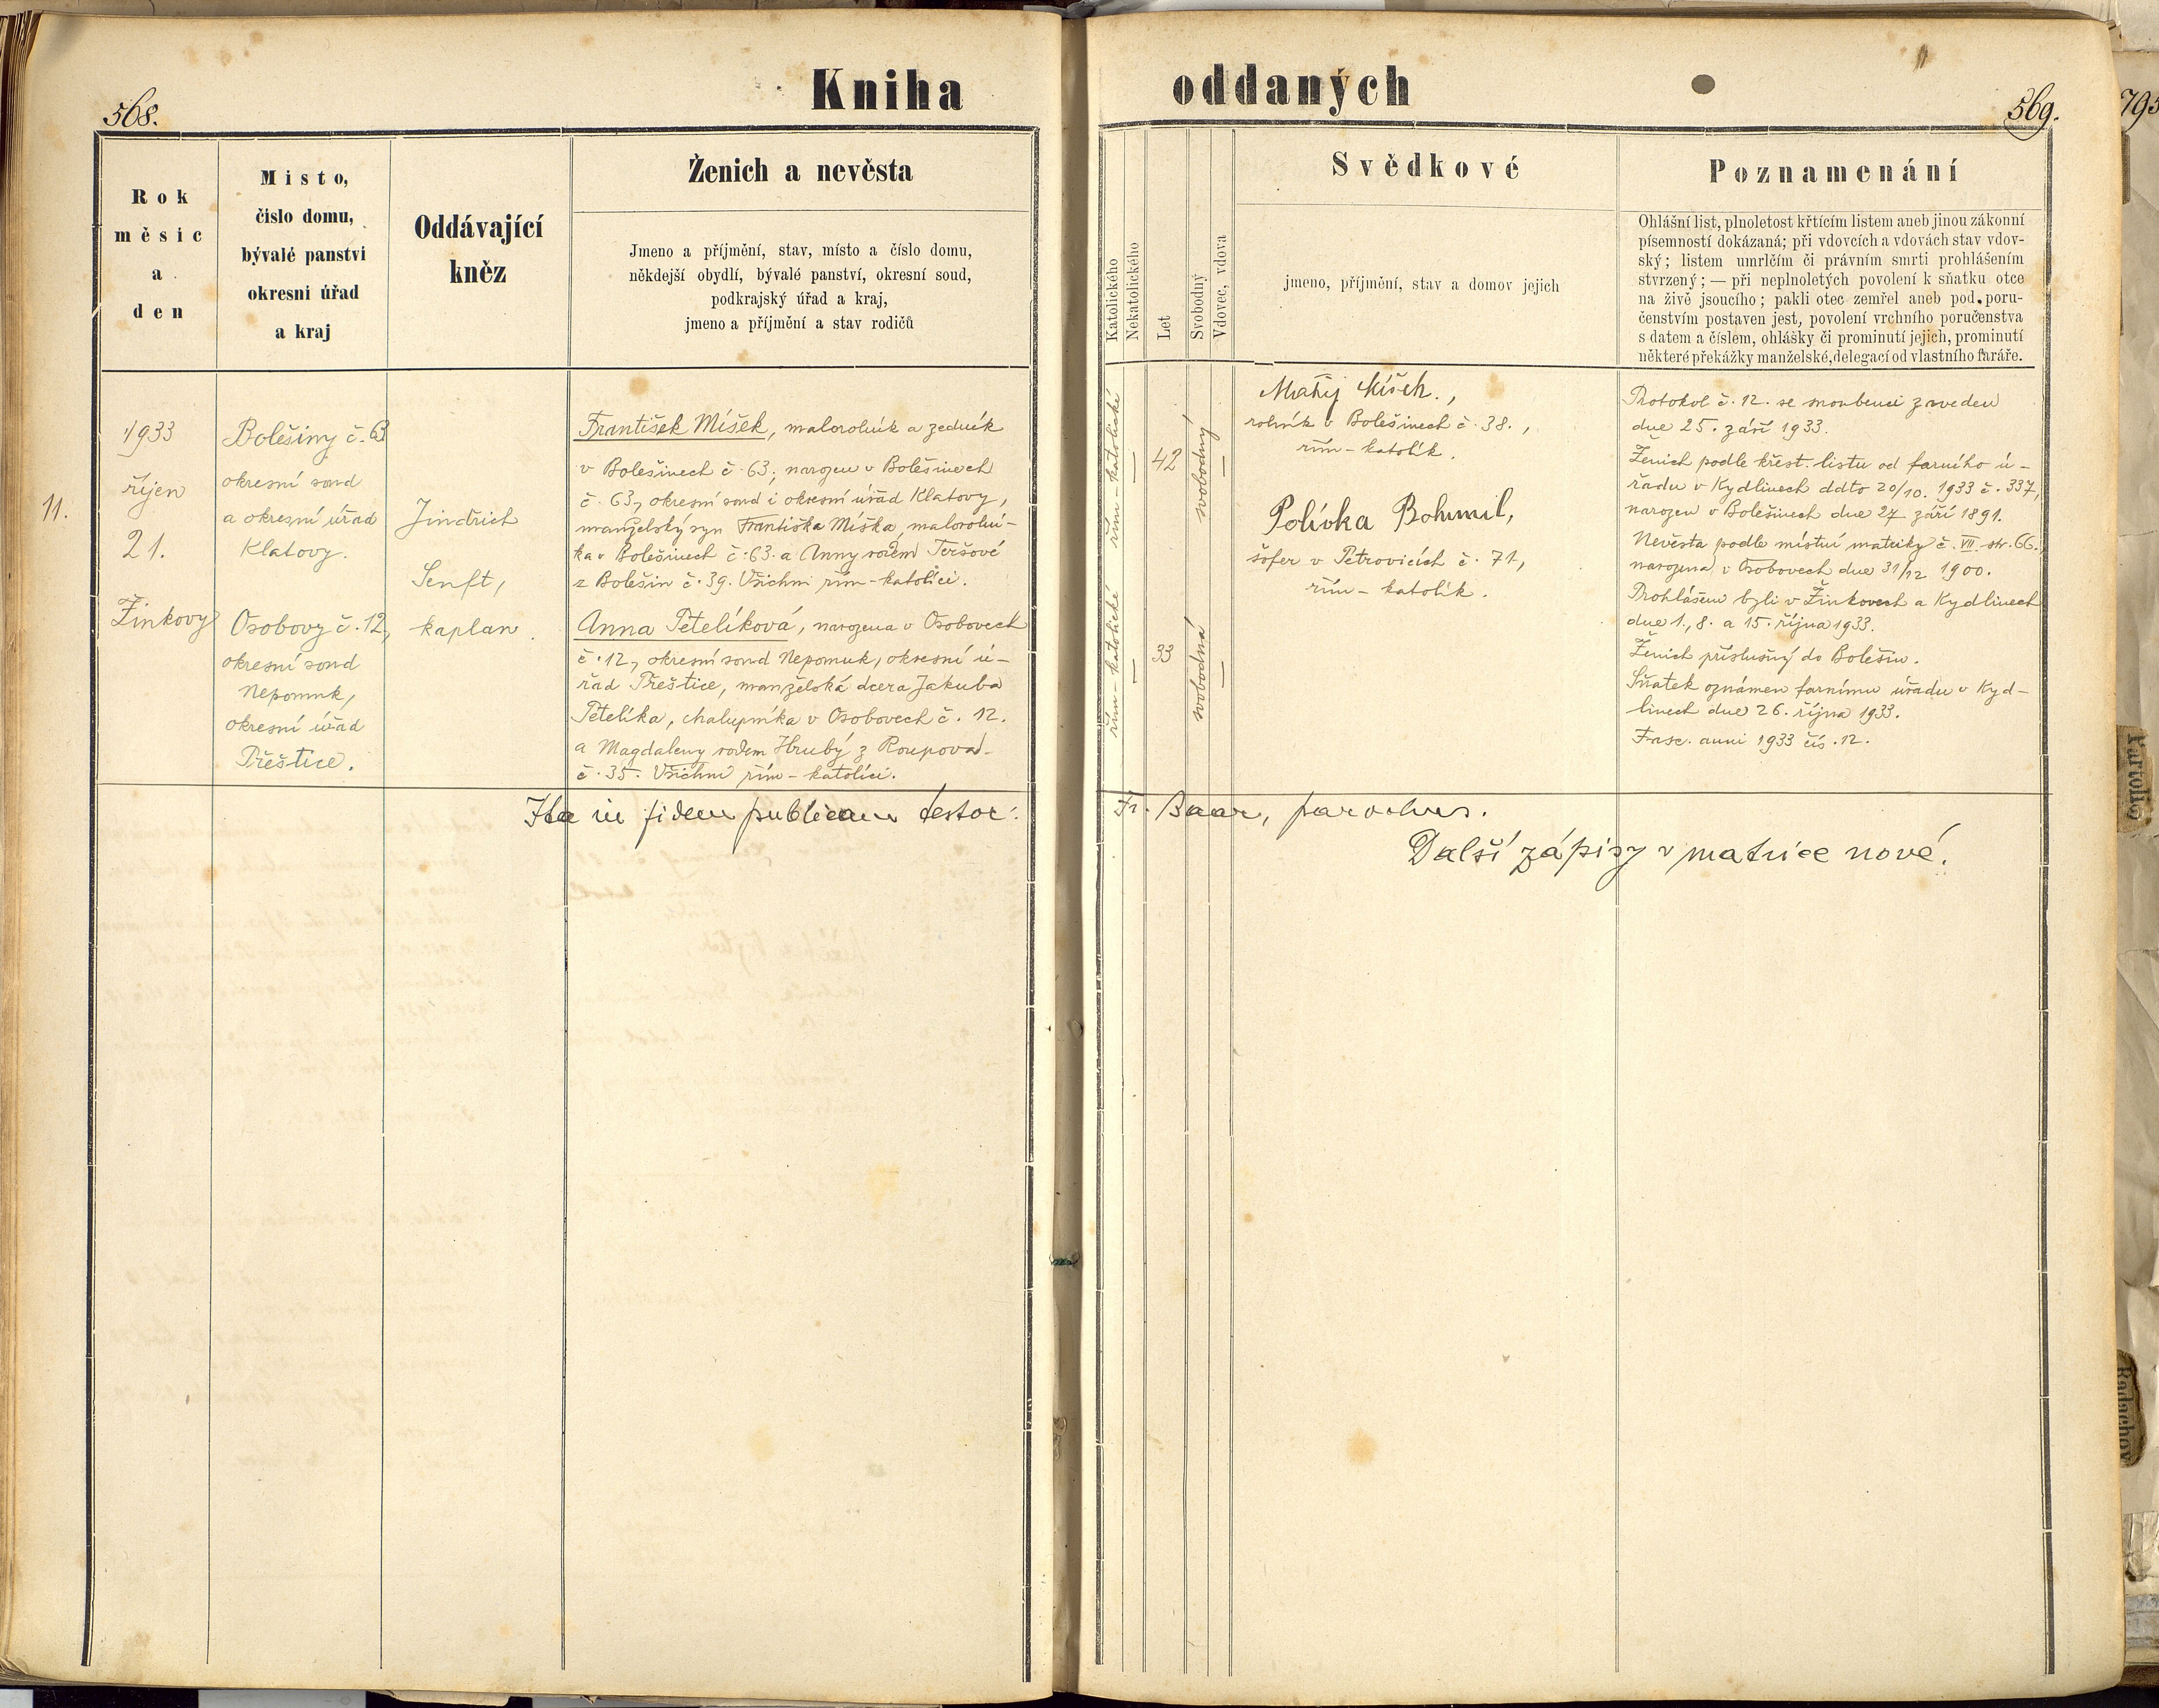 568.
Kniha
oddaných
569.
795
Rok
měsic
a
den
Misto,
čislo domu,
bývalé panstvi
okresni úřad
a kraj
Oddávající
kněz
Ženich a nevěsta
Jmeno a příjmění, stav, místo a číslo domu,
někdejší obydlí, bývalé panství, okresní soud,
podkrajský úřad a kraj,
jmeno a příjmění a stav rodičů
Katolického
Nekatolického
Let
Svobodný
Vdovec, vdova
Svědkové
jmeno, příjmění, stav a domov jejich
Poznamenání
Ohlášní list, plnoletost křtícím listem aneb jinou zákonní
písemností dokázaná; při vdovcích a vdovách stav vdov-
ský; listem umrlčím či právním smrti prohlášením
stvrzený; — při neplnoletých povolení k sňatku otce
na živě jsoucího; pakli otec zemřel aneb pod poru-
čenstvím postaven jest, povolení vrchního poručenstva
s datem a číslem, ohlášky či prominutí jejich, prominutí
některé překážky manželské, delegací od vlastního faráře.
11.
1933
říjen
21.
Žinkovy
Bolešiny č. 63
okresní soud
a okresní úřad
Klatovy.
Osobovy č. 12,
okresní soud
Nepomuk,
okresní úřad
Přeštice.
Jindřich
Senft,
kaplan.
František Míšek, malorolník a zedník
v Bolešinech č. 63, narozen v Bolešinech
č. 63, okresní soud i okresní úřad Klatovy,
manželský syn Františka Míška, malorolní-
ka v Bolešinech č. 63. a Anny rozem Teršové
z Bolešin č. 39. Všichni řím-katolíci.
Anna Petelíková, narozena v Osobovech
č. 12, okresní soud Nepomuk, okresní ú-
řad Přeštice, manželská dcera Jakuba
Petelíka, chalupníka v Osobovech č. 12.
a Magdaleny rozem Hrubý z Roupova
č. 35. Všichni řím-katolíci.
řím-katolické
—
42
svobodný
—
řím-katolické
—
33
svobodná
—
Matěj Míšek.,
rolník v Bolešinech č. 38.,
řím-katolík.
Polívka Bohumil,
šofer v Petrovicích č. 71,
řím-katolík.
Protokol č. 12. se snoubenci zaveden
dne 25. září 1933.
Ženich podle křest. listu od farního ú-
řadu v Kydlinech ddto 20/10. 1933 č. 337,
narozen v Bolešinech dne 27 září 1891.
Nevěsta podle místní matriky č. VII. str. 66.
narozena v Osobovech dne 31/12 1900.
Prohlášeni byli v Žinkovech a Kydlinech
dne 1., 8. a 15. října 1933.
Ženich příslušný do Bolešin.
Sňatek oznámen farnímu úřadu v Kyd-
linech dne 26. října 1933.
Fasc. anni 1933 čís. 12.
Ita in fidem publicam testor:
Fr. Baar, parochus.
Další zápisy v matrice nové.